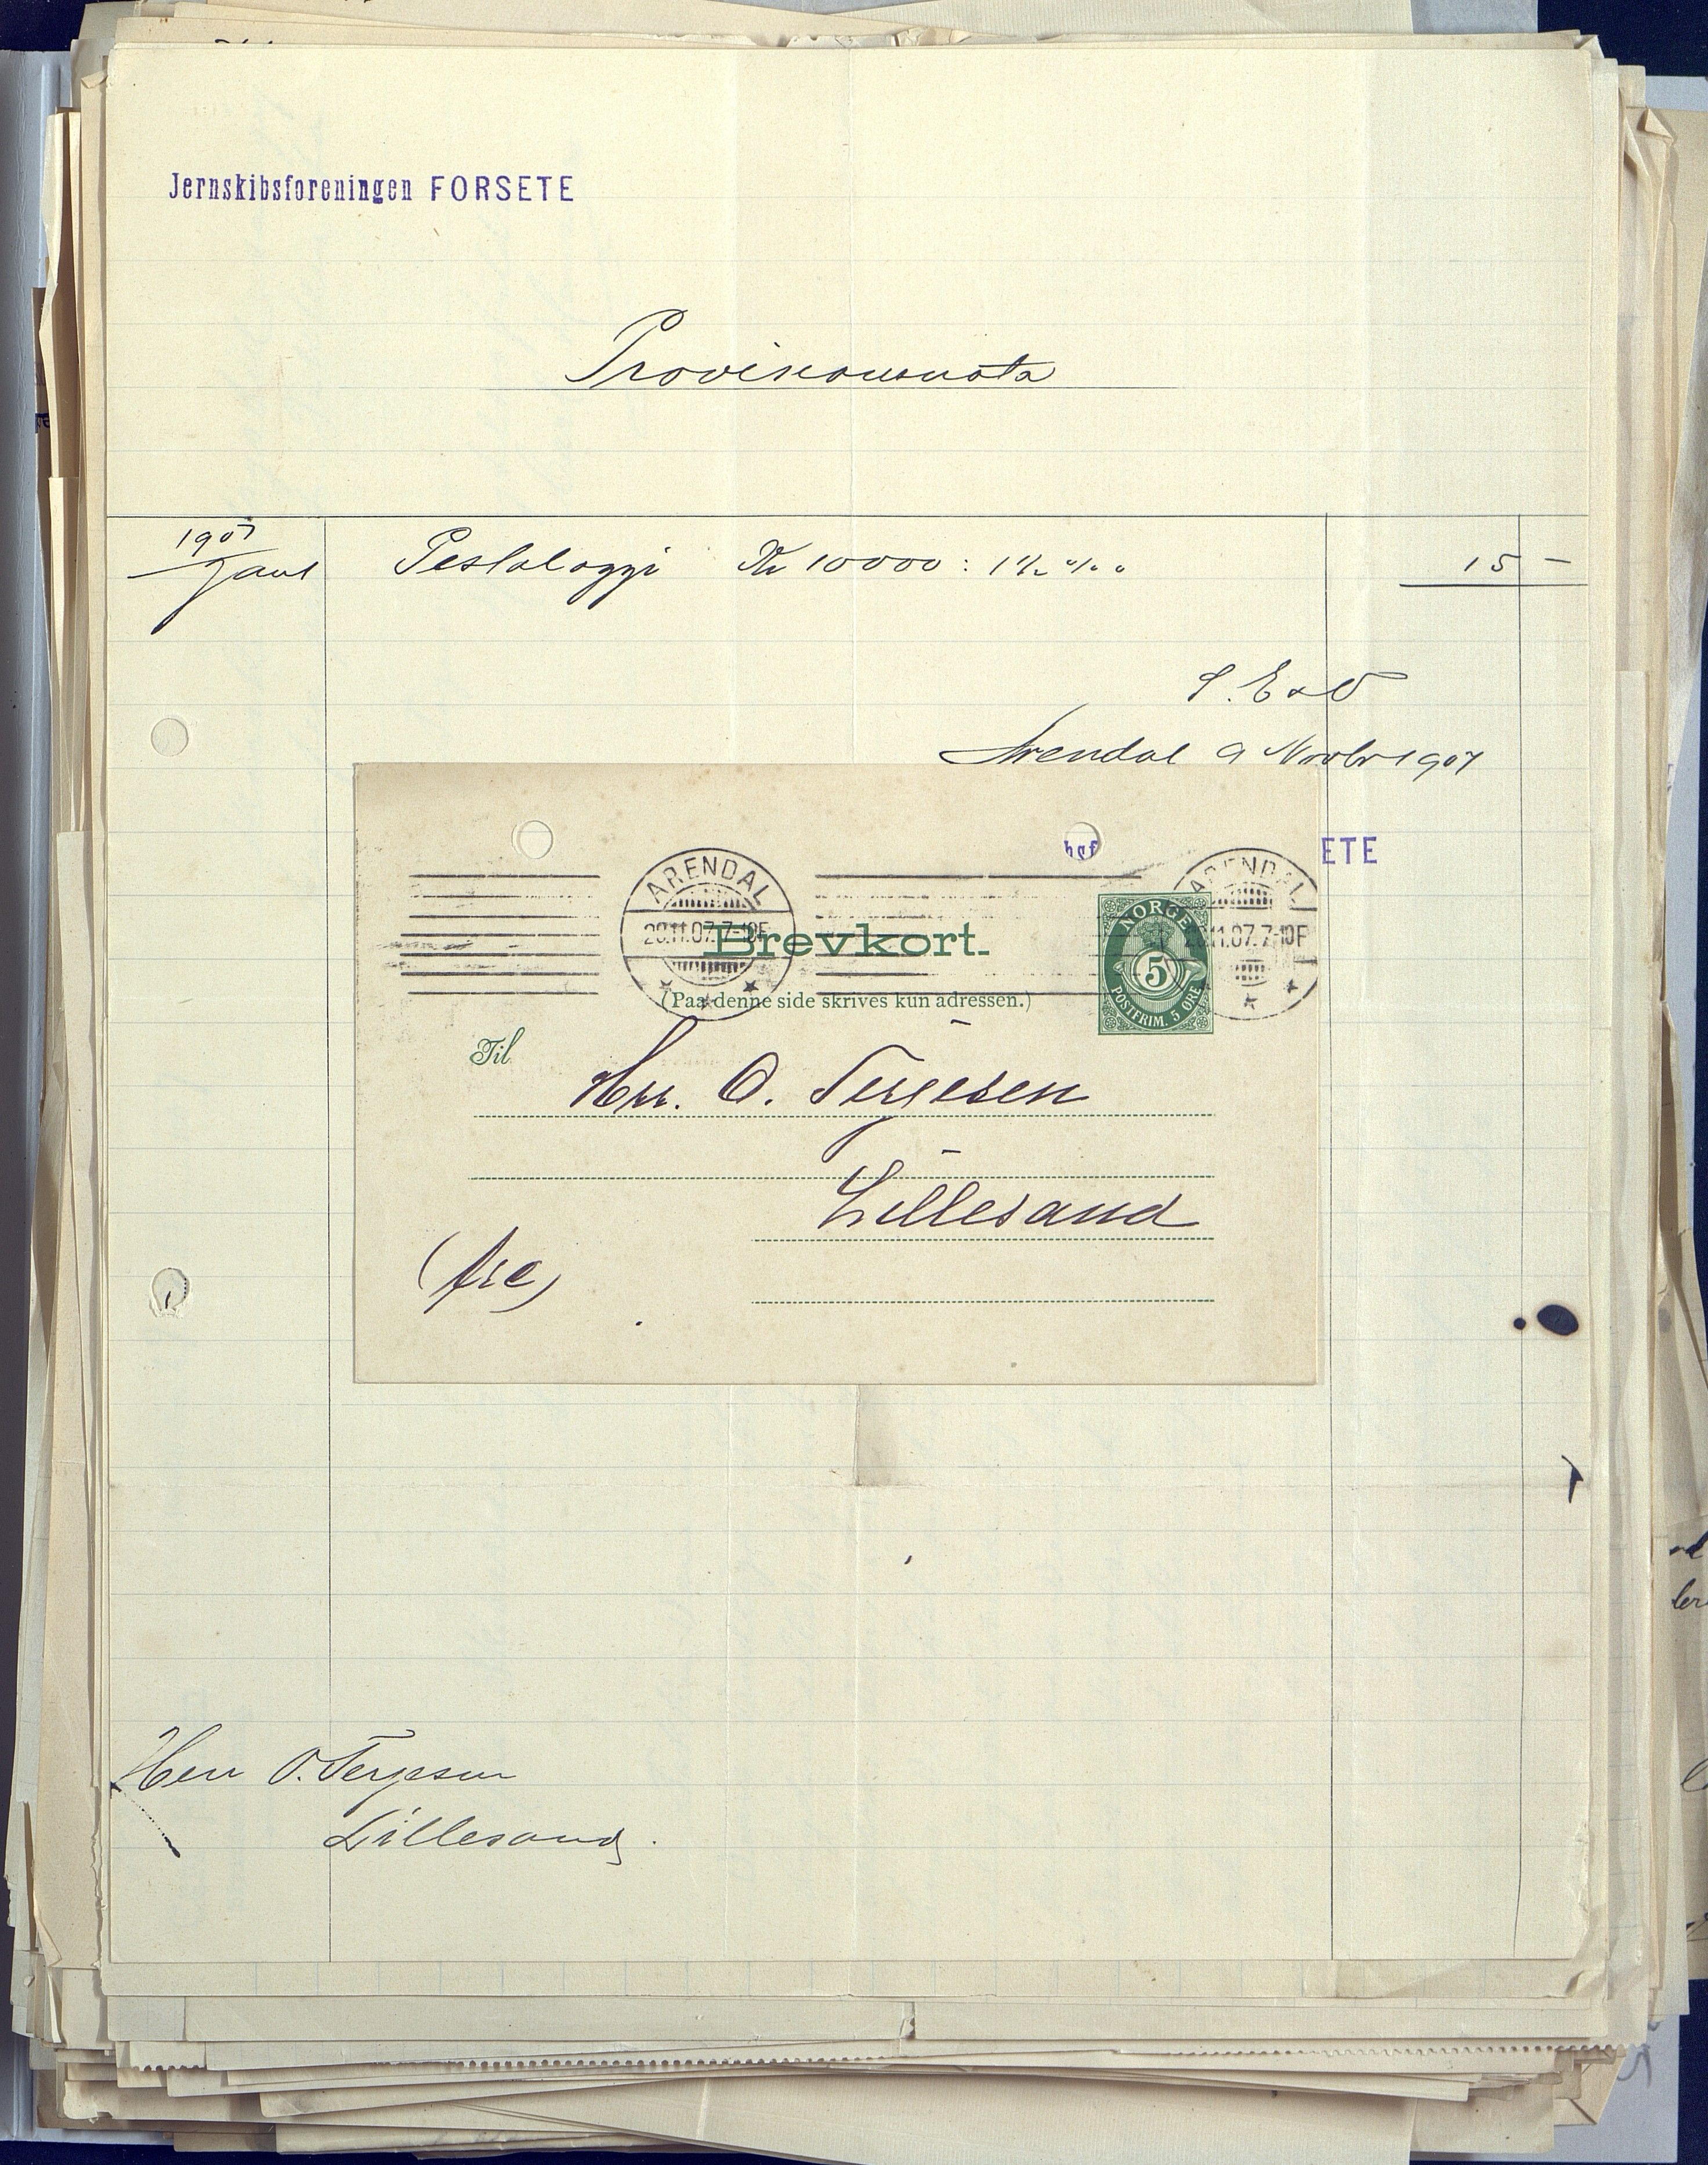 Jernskibsforeningen FORSETE
Provisionsnota
1907
Pestalozzi Kr 10000: 1½ ‰ 15 –
S. E & O
Arendal 9 Novbr 1907
ETE
ARENDAL
ARENDAL
20.11.07.7-10F
11.07.7-10F
Brevkort.
NORGE
5
POSTFRIM. 5 ØRE
(Paa denne side skrives kun adressen.)
Til
Hrr. O. Terjesen
Lillesand
Herr O. Terjesen
Lillesand.